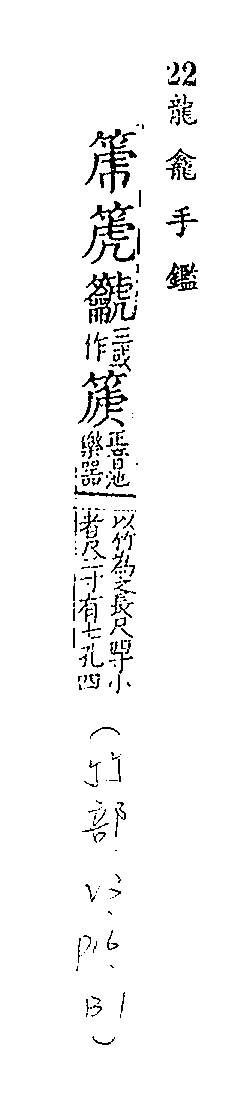 22龍龕手鑑
箎
三或
作
正音池
樂器
以竹為之長尺四寸小
者尺二寸有七孔四
(竹部.V3.P16.B1)